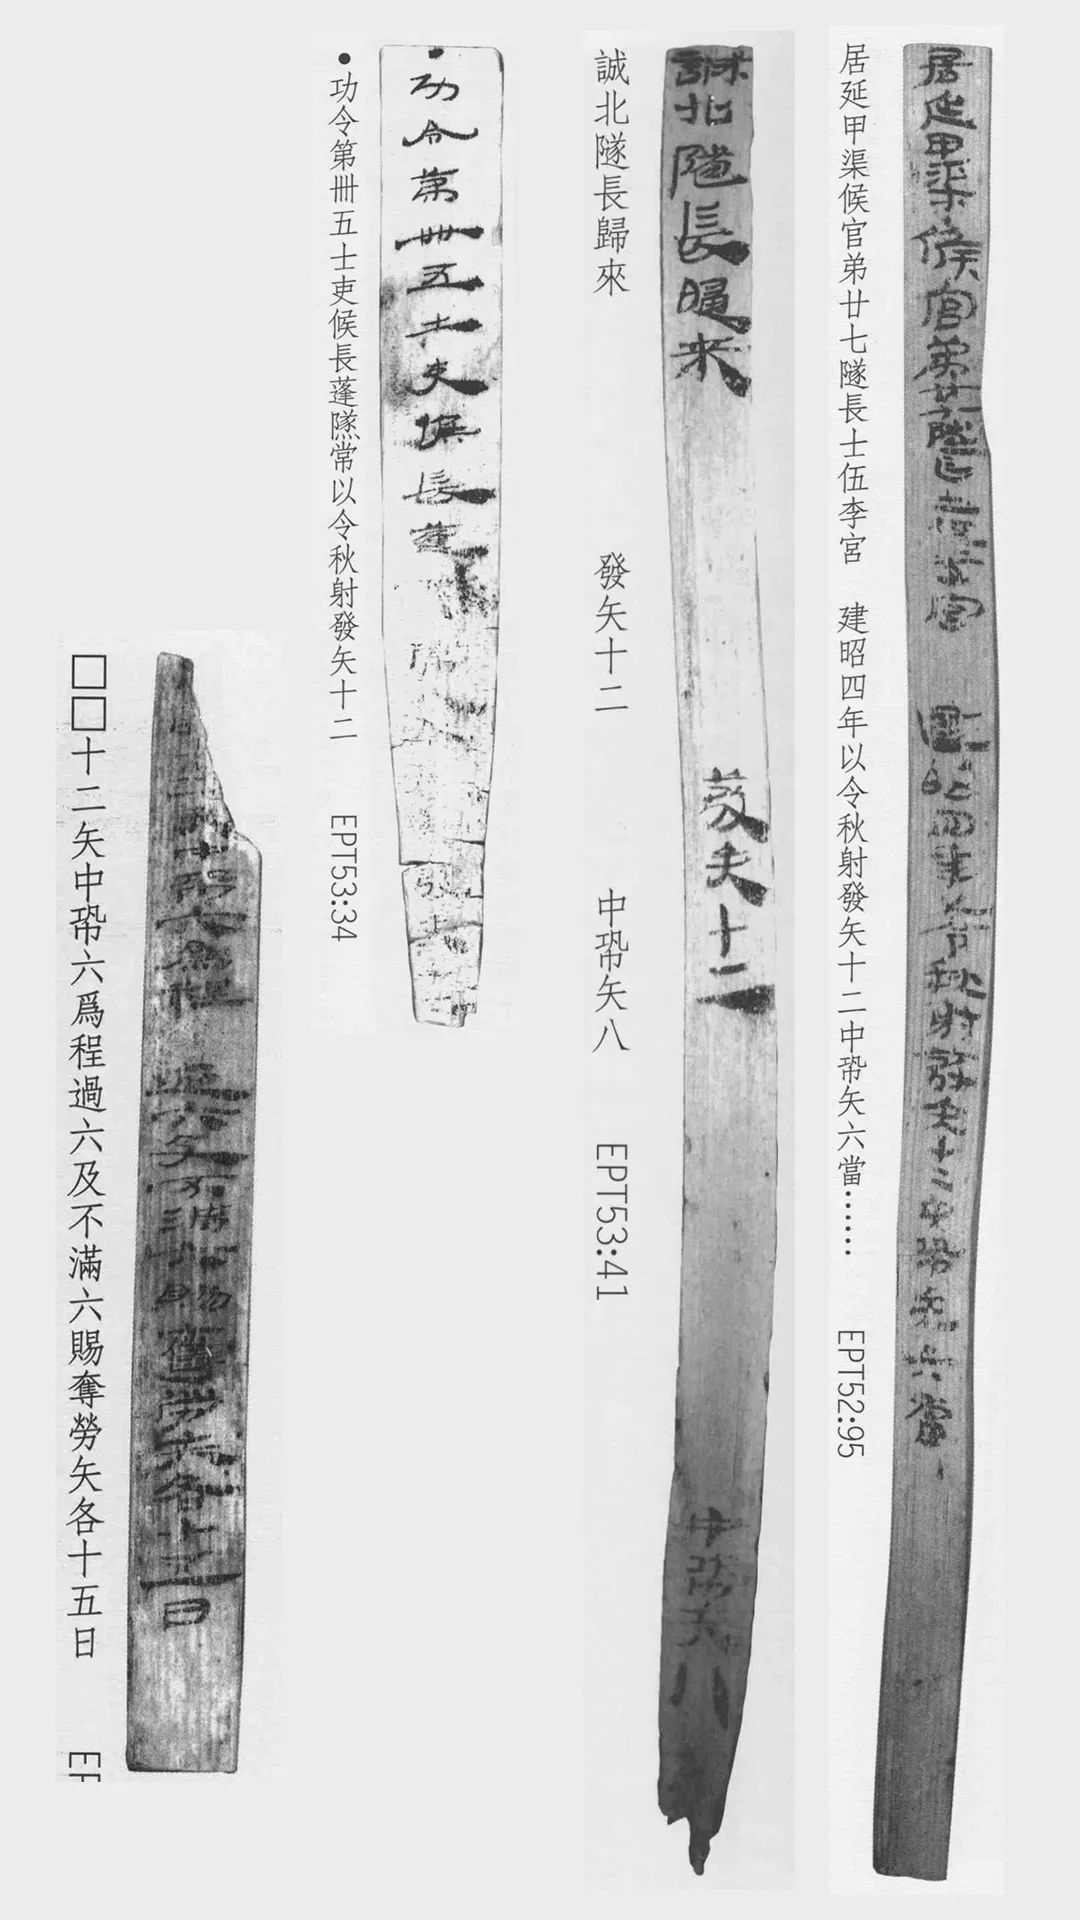 居延甲渠候官弟廿七隧長士伍李宮　建昭四年以令秋射發矢十二中帣矢六當……　EPT52:95
誠北隧長歸來　發矢十二　中帣矢八　EPT53:41
誠北隧長歸來
發矢十二
中帣矢八
•功令第卌五士吏候長蓬隧常以令秋射發矢十二　EPT53:34
功令第卌五士吏候長蓬
□□十二矢中帣六爲程過六及不滿六賜奪勞矢各十五日　EP